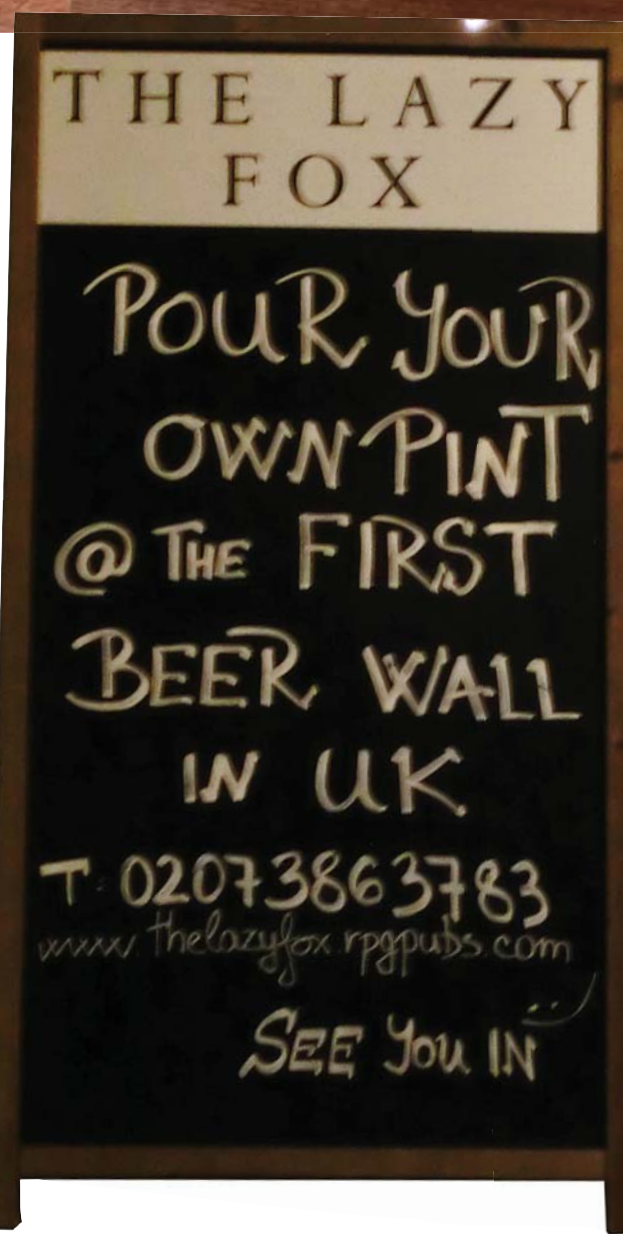 THE LAZY
FOX
POUR YOUR
OWN PINT
@ THE FIRST
BEER WALL
IN UK
T: 02073863783
www.thelazyfox.rpgpubs.com
SEE YOU IN